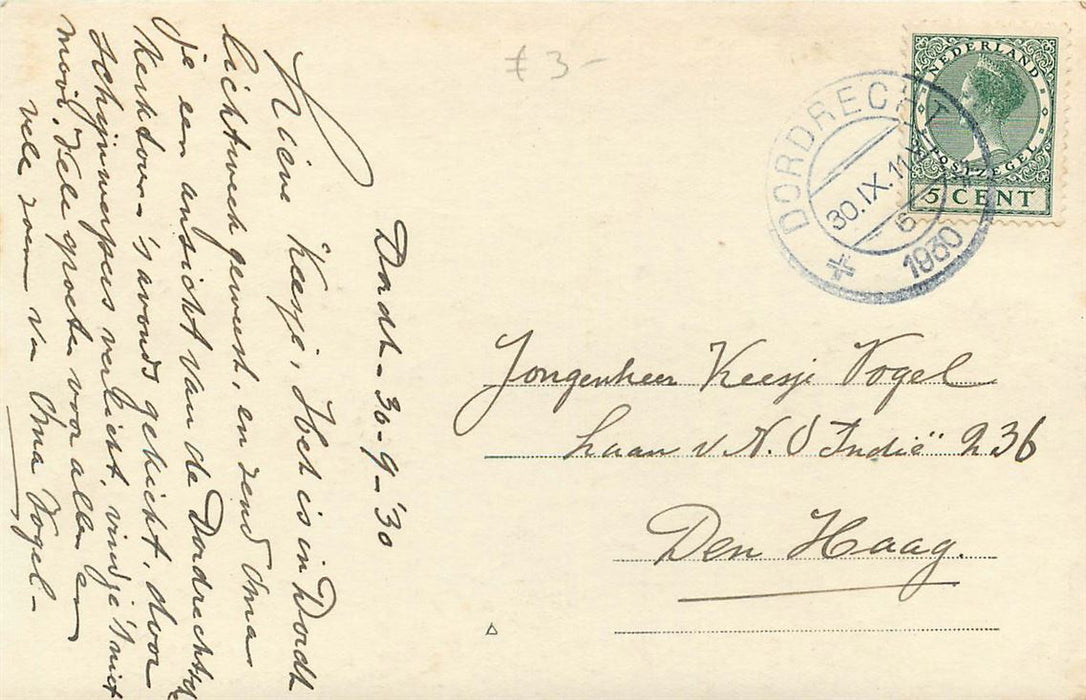 Dordt - 30-9-'30
Lieve Keesje, Het is in Dordt
lichtweek geweest, en zend Oma
je een ansicht van de Dordrechtsche
Kerktoren 's avonds gekiekt, door
schijnwerpers verlicht, vind je 't niet
mooi. Vele groeten voor allen en
vele zoenen van Oma Vogel-
£ 3-
NEDERLAND
POSTZEGEL
5 CENT
DORDRECHT
30.IX.11
6
1930
Jongenheer Keesje Vogel
Laan v. N. O Indië 236
Den Haag.